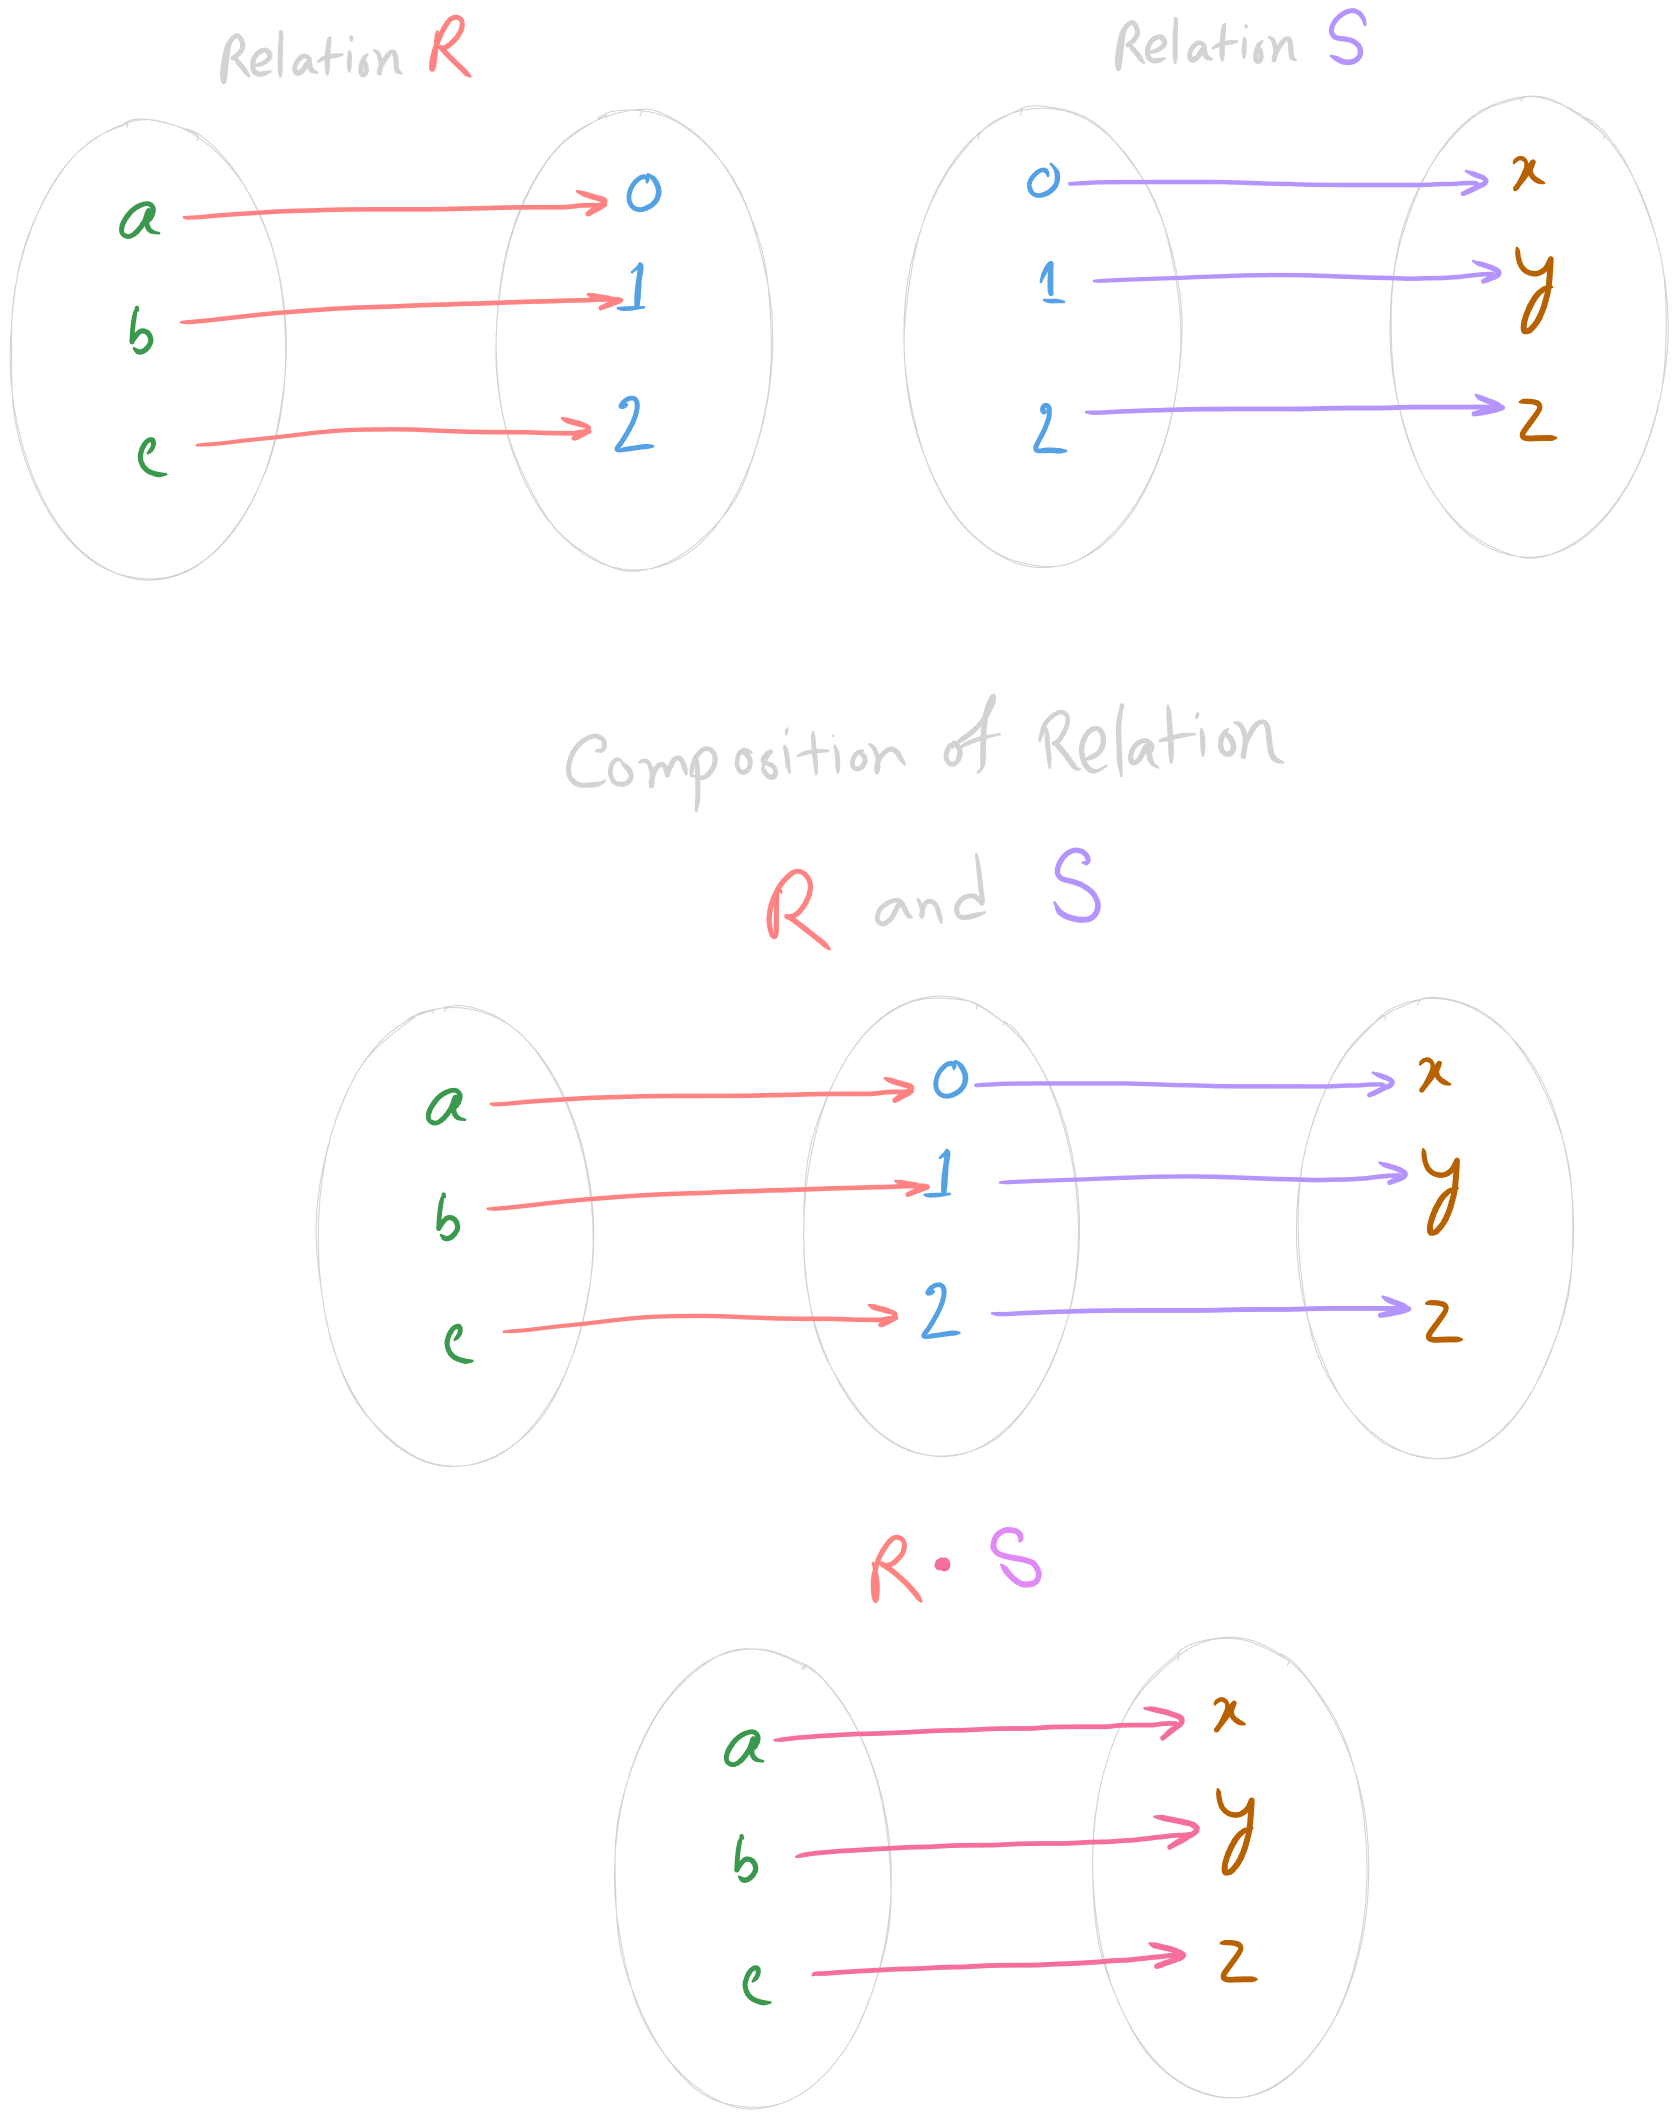 Relation R
Relation S
a
b
c
0
1
2
0
1
2
x
y
z
Composition of Relation
R and S
a
b
c
0
1
2
x
y
z
R • S
a
b
c
x
y
z